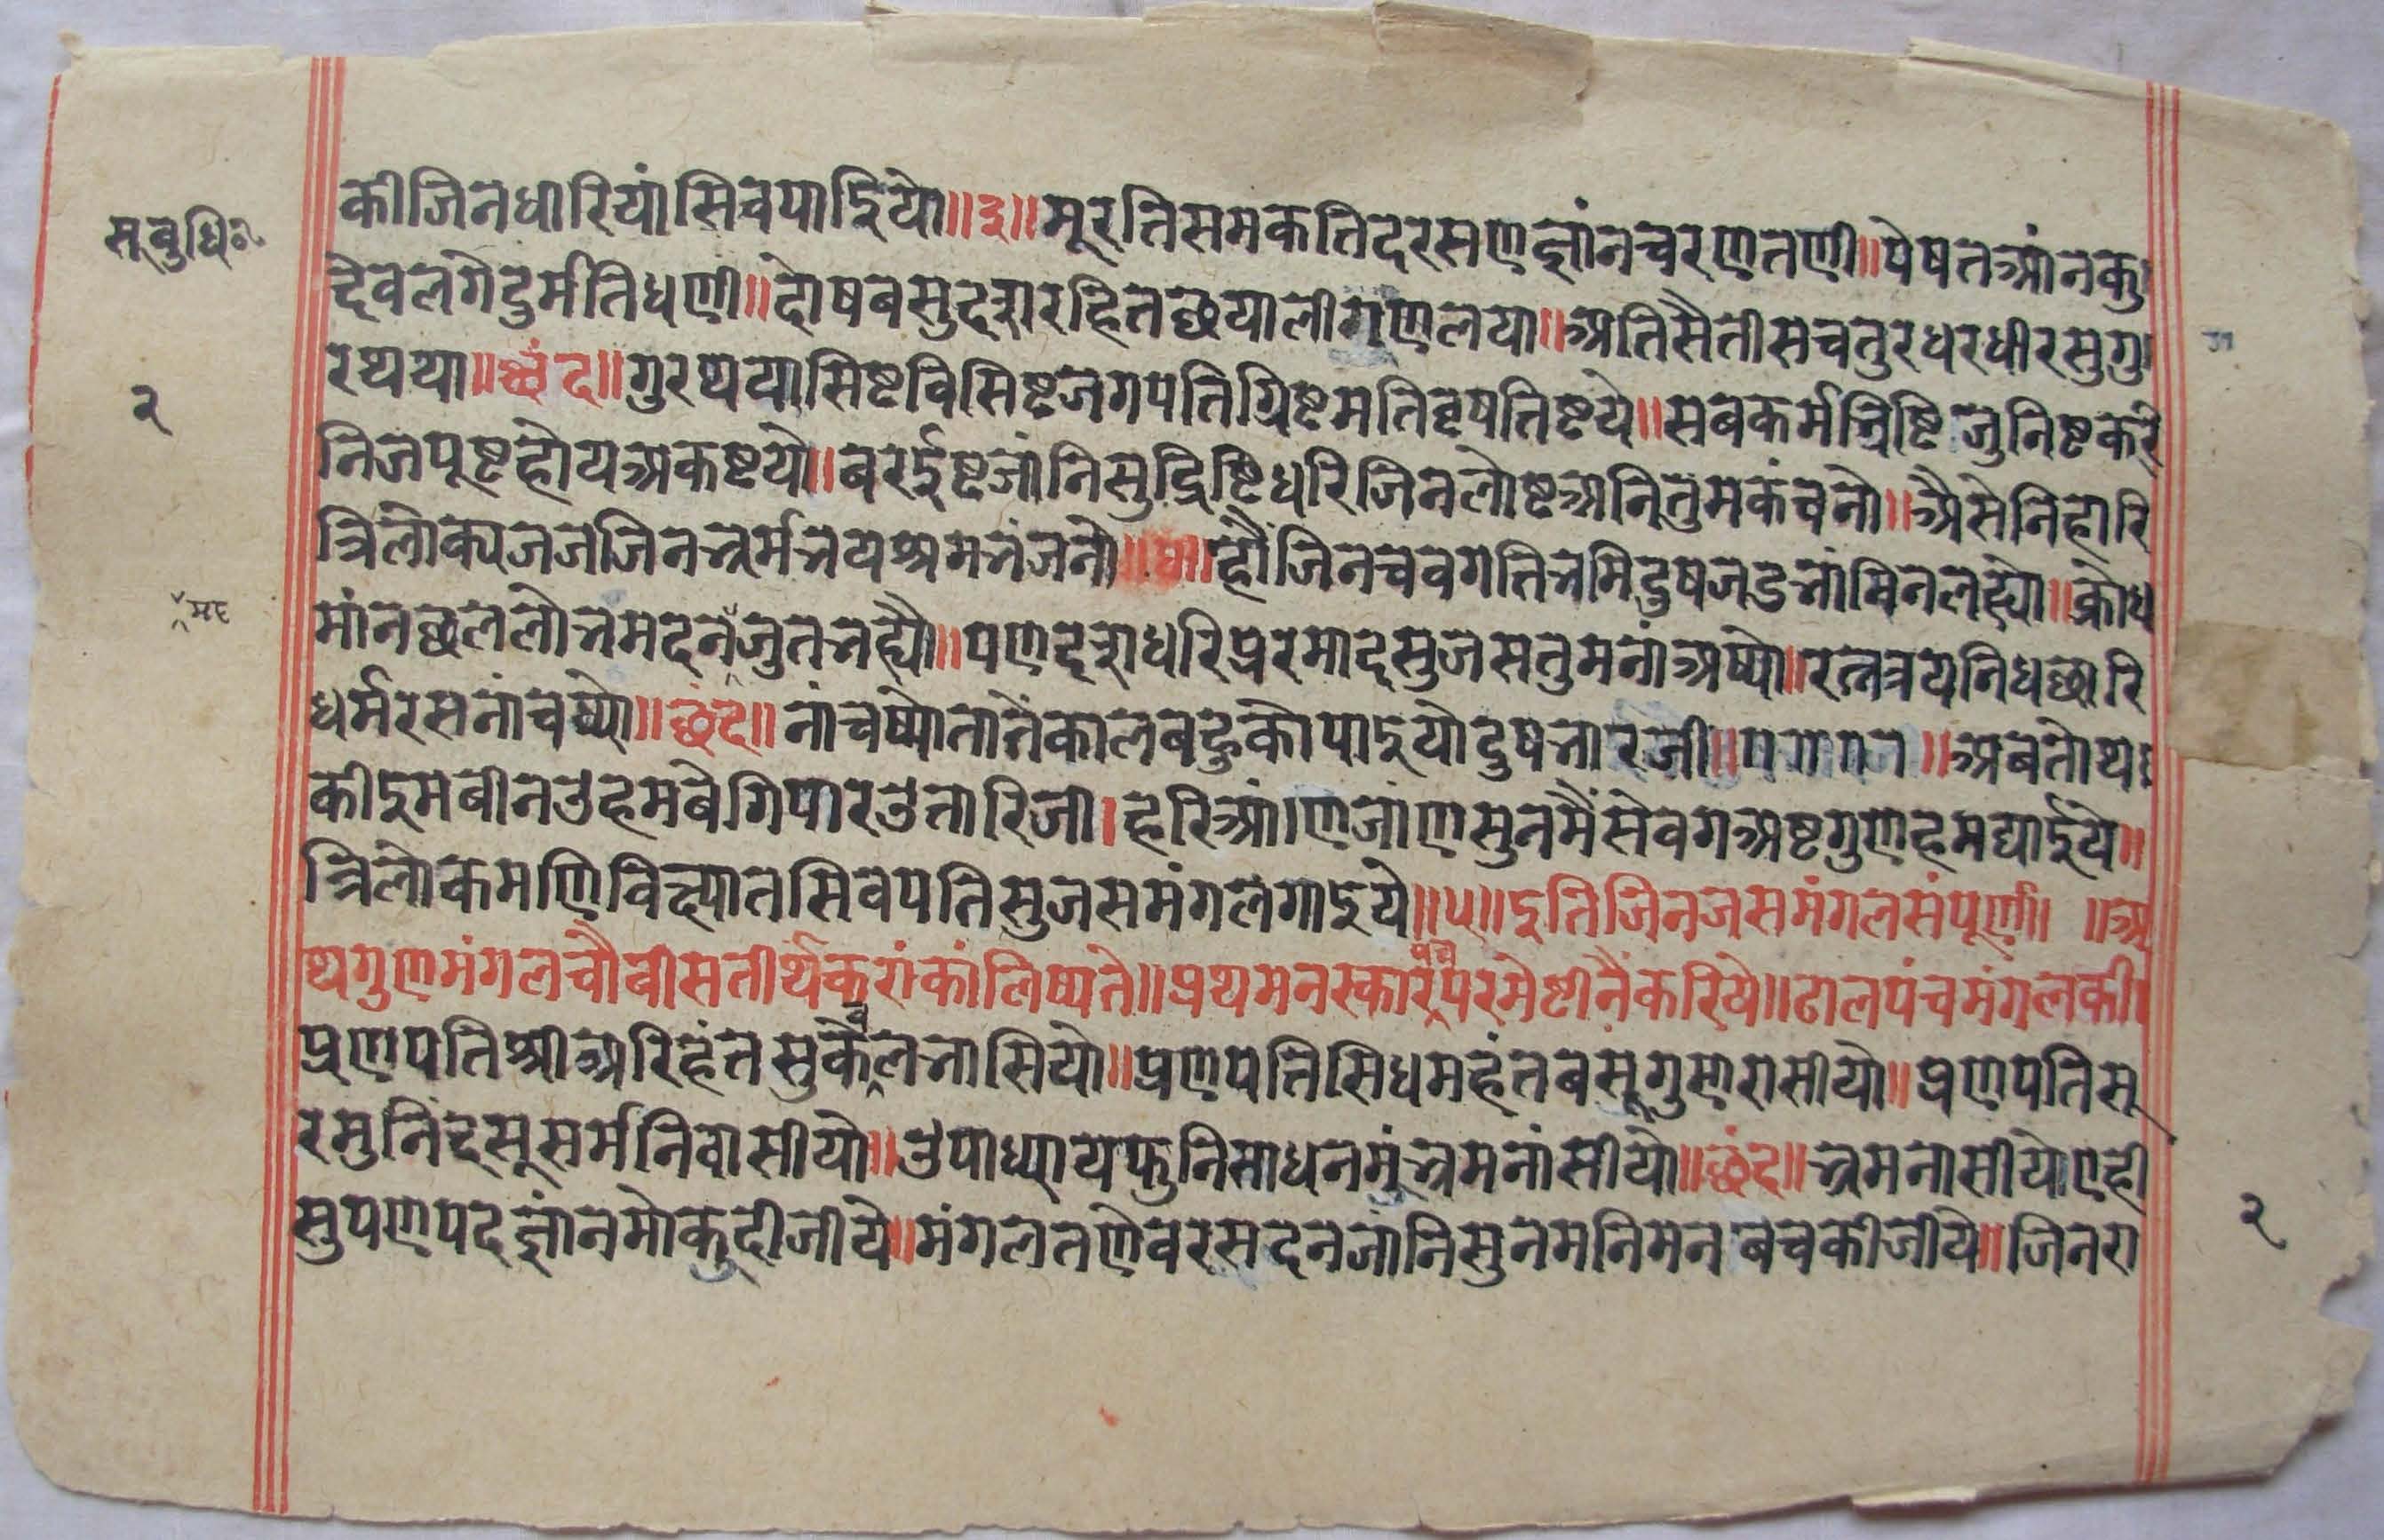 कीजिनधारियांसिवपाईयो॥३॥मूरतिसमकतिदरसणज्ञांनचरणतणी॥पेषतआंनकु
सूबुधि॰
देवलगेदुर्मतिघणी॥दोषबसुदशरहितछयालीगुणलया॥अतिसैतीसचतुरधरधीरसुगु
रथथा॥छंद॥गुरथयासिष्टविसिष्टजगपतिग्रिष्टमतिवृषतिष्टये॥सबकर्मभ्रिष्टिजुनिष्टकरि
२
निजपूष्टहोयअकष्टयो॥बरईष्टजांनिसुद्रिष्टिधरिजिनलोष्टआनितुमकंचनो॥अैसेनिहारि
त्रिलोक्यजजजिनभर्मभयश्रमभंजनो॥४॥हौंजिनचवगतिभ्रमिदुषजडनांमिनलह्यो॥क्रोध
मांनछललोभमदनजुतभह्यौ॥पणदशधरिप्ररमादसुजसतुमनांअष्यो॥रत्नत्रयनिधछारि
धर्मरसनांचष्यो॥छंद॥नांचष्योतातैंकालबहुकोपाइयोदुषभारजी॥॥अबतोथ
कीइमबीनउहमबेगिपारउतारिजी।हरिआंणिजांणसुनमैंसेवगअष्टगुणहमद्याईये॥
त्रिलोकमणिविख्यातसिवपतिसुजसमंगलगाइये॥५॥इतिजिनजसमंगलसंपूर्ण॥ ॥अ
थगुणमंगलचौबीसतीर्थकरांकांलिष्यते॥प्रथमनस्कारपंचपरमेष्टीनैंकरिये॥ढालपंचमंगलकी।
प्रणपतिश्रीअरिहंतसुकेवलभासियो॥प्रणपतिसिधमहंतबसूगुणरासीयो॥प्रणपतिसू
रमुनिंदसूसर्मनिवासीयो॥उपाध्यायफुनिसाधनमुंभ्रमनांसीयो॥छंद॥भ्रमनासीयोएही
सुपणपदज्ञांनमोकुदीजीये॥मंगलतणेवरसदनजांनिसुनमनिमनबचकीजीये॥जिनरा
२